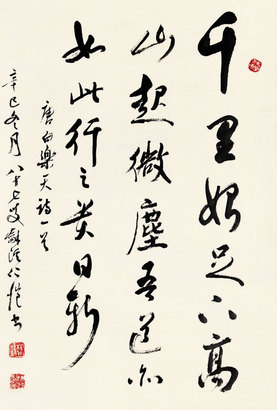 千里始足下高
山起微塵吾道亦
如此行之貴日新
唐白樂天詩一首
辛巳冬月八十七叟劍溪仁愷書